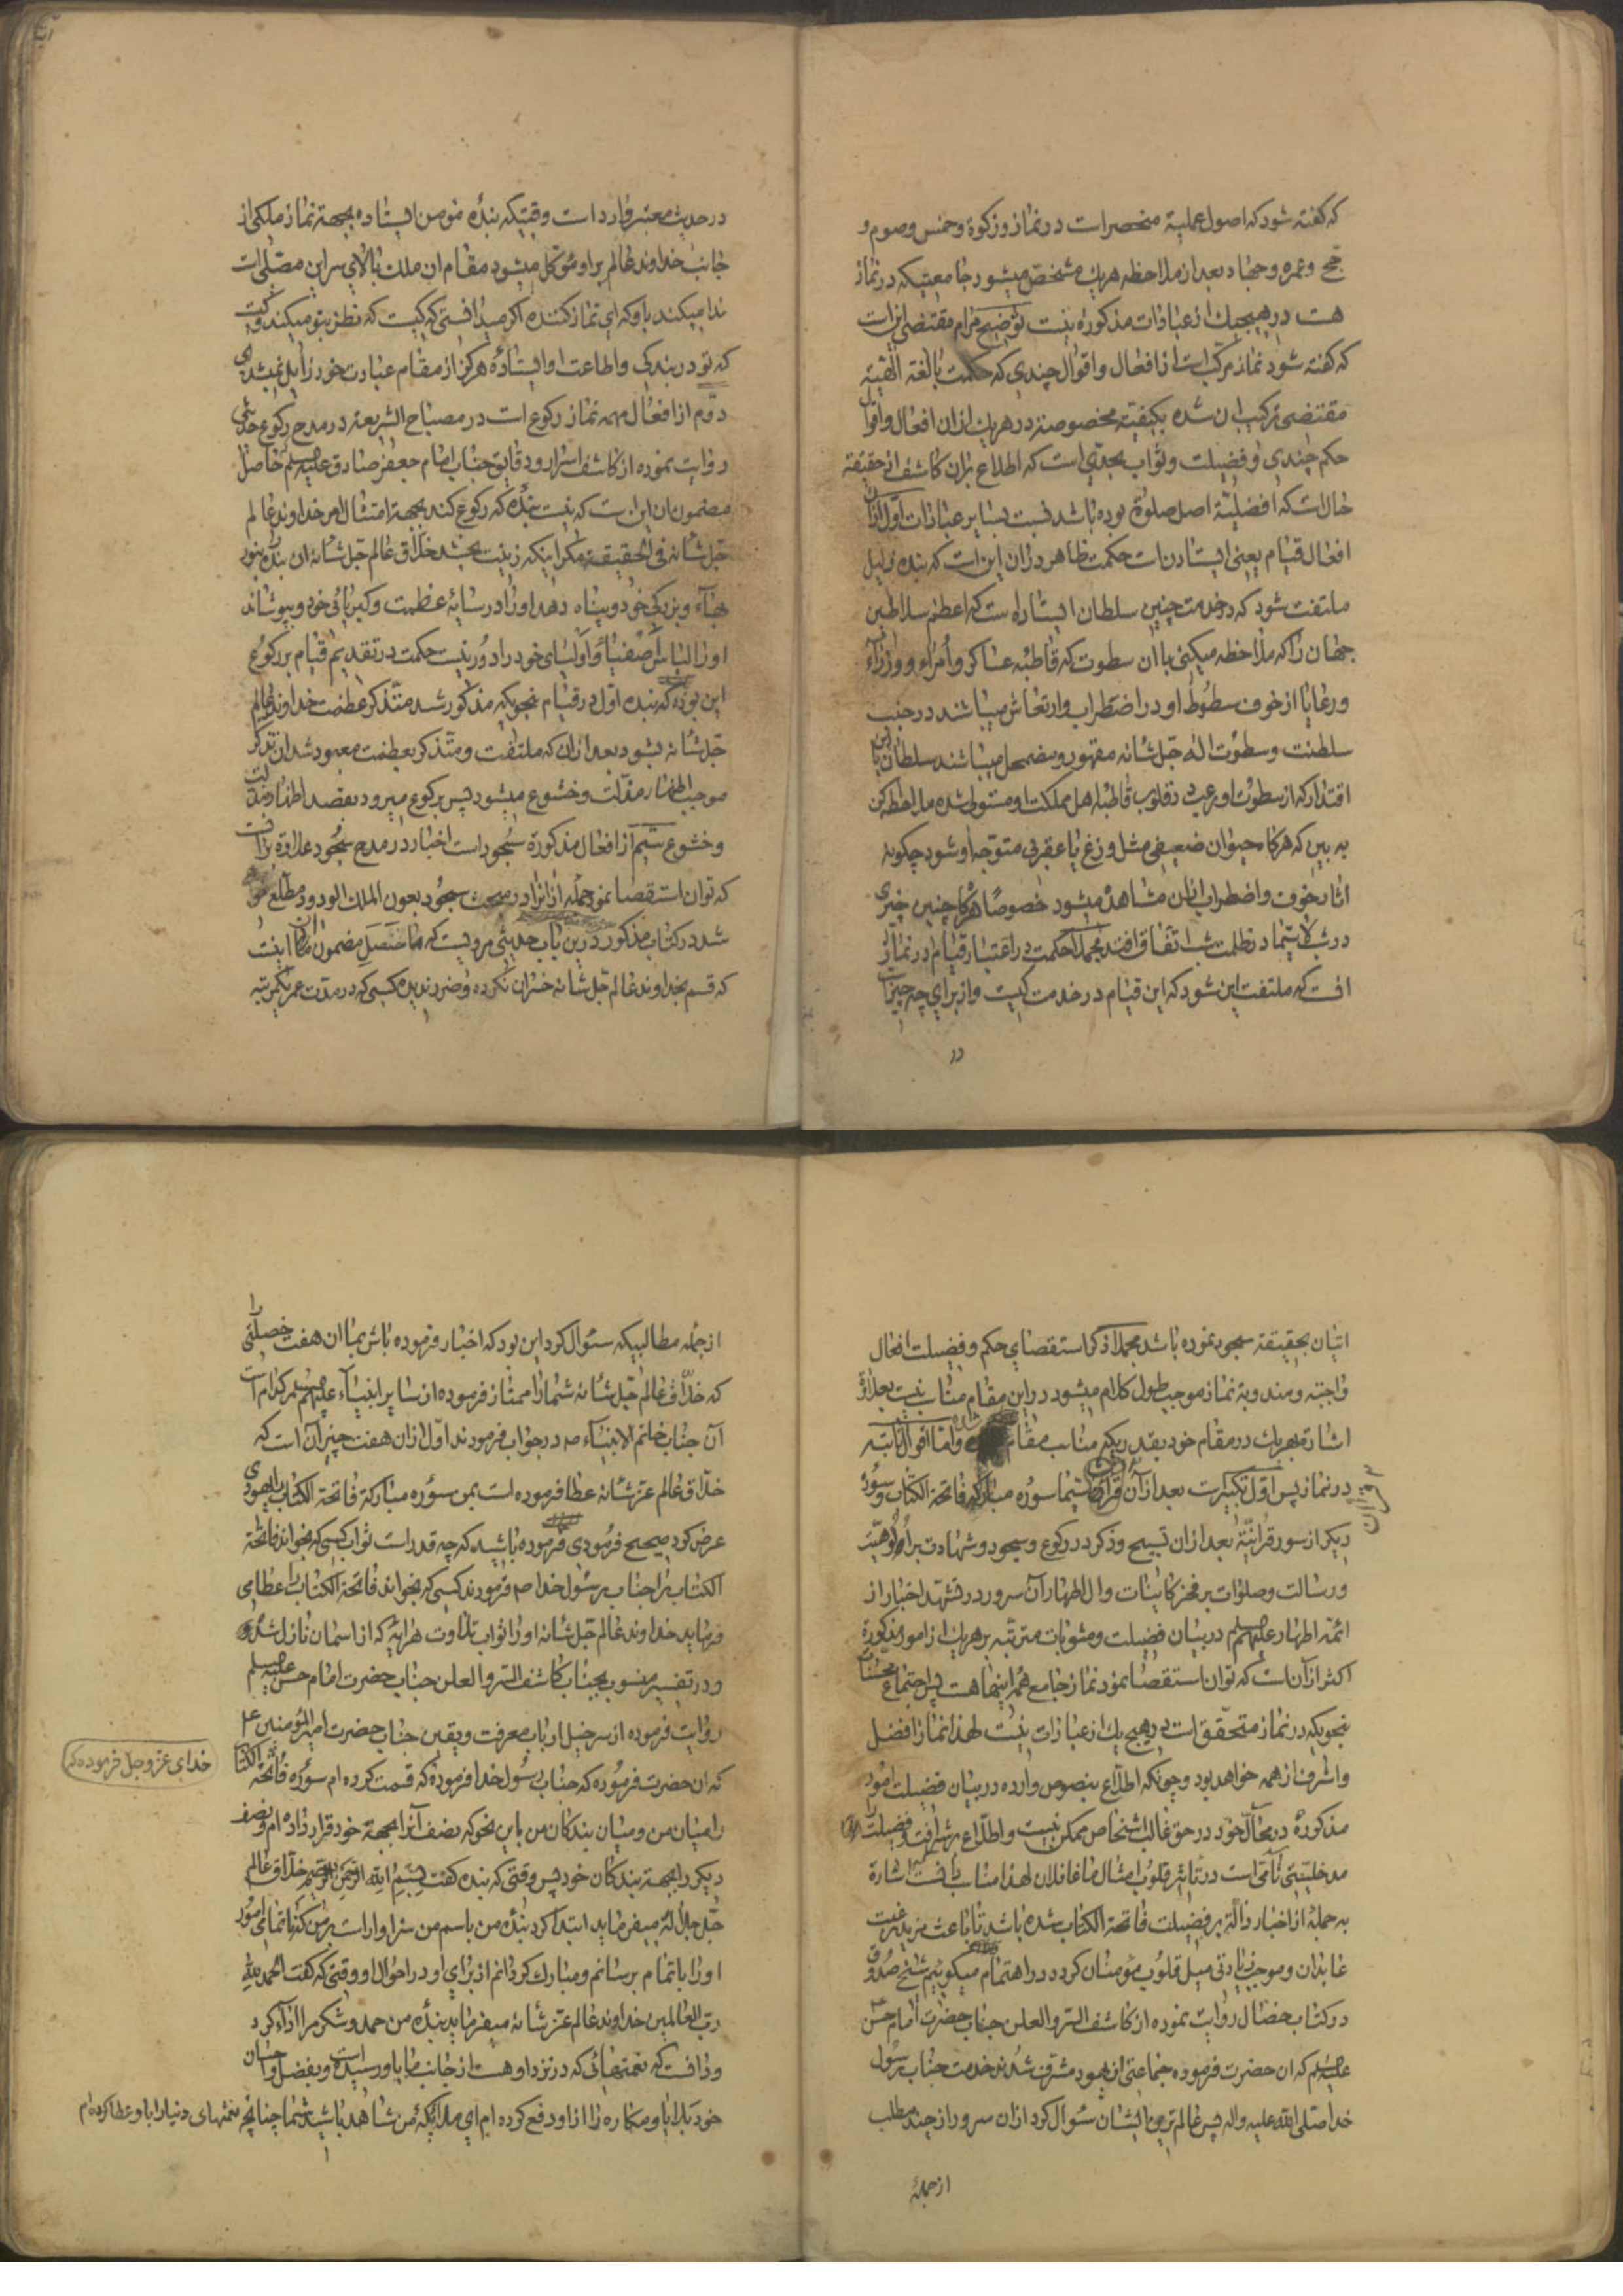 که گفته شود که اصول عملیة منحصر است در نماز و زکوة و خمس و صوم و
حج و عمره و جهاد بعد از ملاحظه هریك مشخص میشود جامعیتیکه در نماز
هست در هیچیك از عبادات مذکوره نیست توضیح مرام مقتضی این است
که گفته شود نماز مرکب است از افعال و اقوال چندی که حکمت بالغه الهیة
مقتضی ترکیب ان شده بکیفیته مخصوصه در هریك از ان افعال و اقوال
حکم چندی و فضیلت و ثواب بحدی است که اطلاع بران کاشف از حقیقة
حال است که افضلیة اصل صلوة بوده باشد نسبت بسایر عبادات اول ازان
افعال قیام یعنی ایستادن است حکمت ظاهر دران این است که بنده ذلیل
ملتفت شود که در خدمت چنین سلطان ایستاده است که اعظم سلاطین
جهان را که ملاحظه میکنی باان سطوت که قاطبه عساکر و امراء و وزراء
و رعایا از خوف سطوط او در اضطراب و ارتعاش میباشند در جنب
سلطنت و سطوت اله جل شانه مقهور و مضمحل میباشند سلطان باین
اقتدار که از سطوت او رعب در قلوب قاطبه اهل مملکت او مستولی شده ملاحظه کن
به بین که هرکاه حیوان ضعیفی مثل وزغ یا عقربی متوجه او شود چکونه
اثار خوف و اضطراب ازان مشاهده میشود خصوصا هرکاه چنین چیزی
در شب لاسیما در ظلمت شب اتفاق افتد مجملا حکمت در اعتبار قیام در نماز
انست که ملتفت این شود که این قیام در خدمت کیست و از برای چه چیز است
در
در حدیث معتبر وارد است وقتیکه بنده مومن ایستاده بجهة نماز ملکی از
جانب خداوند عالم بر او موکل میشود مقام ان ملك بالای سر این مصلی است
ندا میکند باو که ای نماز کننده اکر میدانستی که کیست که نظر بتو میکند و کیست
که تو در بندکی و اطاعت او ایستادهٔ هرکز از مقام عبادت خود زایل نمیشدی
دوم از افعال مهمه نماز رکوع است در مصباح الشریعه در مدح رکوع حدیثی
روایت نموده از کاشف اسرار و دقایق جناب امام جعفر صادق علیه السلم حاصل
مضمون ان این است که نیست بندهٔ که رکوع کند بجهة امتثال امر خداوند عالم
جل شانه فی الحقیقة مکر اینکه زینت بخشد خلاق عالم جل شانه ان بنده را بنور
بهاء و بزرکی خود و پناه دهد او را در سایهٔ عظمت و کبریائی خود و بپوشاند
او را لباس اصفیاء و اولیای خود را دور نیست حکمت در تقدیم قیام بر رکوع
این بوده که بنده اول در قیام بنحویکه مذکور شد متذکر عظمت خداوند عالم
جل شانه بشود بعد ازان که ملتفت و متذکر بعظمت معبود شد ان تذکر
موجب اظهار مذلت و خشوع میشود پس برکوع میرود بقصد اظهار مذلت
و خشوع سیم از افعال مذکوره سجود است اخبار در مدح سجود علاوه برانست
که توان استقصا نمود جمله ازانرا در مبحث سجود بعون الملك الودود مطلع
شد در کتاب مذکور درین باب حدیثی مرویست که ما حصل مضمون ان اینست
که قسم بخداوند عالم جل شانه خسران نکرده و ضرر ندیده کسی که در مدت عمر یکمرتبه
اتیان بحقیقة سجود نموده باشد مجملا ذکر استقصای حکم و فضیلت افعال
واجبه و مندوبه نماز موجب طول کلام میشود در این مقام مناسب نیست بعلاوه
اشاره بهریك در مقام خود بقدریکه مناسب مقام و اما اقوال ثابته
در نماز پس اول تکبیر است بعد ازان قراءت سیما سوره مبارکه فاتحة الکتاب و سورهٔ
دیکر از سور قرانیة بعد ازان تسبیح و ذکر در رکوع و سجود و شهادت بر الوهیت
و رسالت و صلوات بر فخر کاینات و ال اطهار آن سرور در تشهد اخبار از
ائمه اطهار علیهم السلم در بیان فضیلت و مثوبات مترتبه بر هریك از امور مذکوره
اکثر ازان است که توان استقصا نمود نماز جامع همه اینها هست پس اجتماع محسنات
بنحویکه در نماز متحقق است در هیچ یك از عبادات نیست لهذا نماز افضل
و اشرف از همه خواهد بود و چونکه اطلاع بنصوص وارده در بیان فضیلت امور
مذکوره در محال خود در حق غالب اشخاص ممکن نیست و اطلاع بشرافت و فضیلت را
مدخلیتی تامی است در تاثیر قلوب امثال ما غافلان لهذا مناسب دانست اشاره
به جملهٔ از اخبار دالة بر فضیلت فاتحة الکتاب شده باشد تا باعث مزید رغبت
عابدان و موجب زیادتی میل قلوب مؤمنان کردد در اهتمام میکوییم شیخ صدوق
در کتاب خصال روایت نموده از کاشف السر و العلن جناب حضرت امام حسن
علیه السلم که ان حضرت فرموده جماعتی از یهود مشرف شدند خدمت جناب رسول
خدا صلی الله علیه و اله پس عالم ترین ایشان سؤال کرد ازان سرور از چند مطلب
از جملهٔ
از جمله مطالبیکه سئوال کرد این بود که اخبار فرموده باش بما ان هفت خصلتی را
که خلاق عالم جل شانه شما را ممتاز فرموده از سایر انبیاء علیهم السلم کدام است
آن جناب خاتم الانبیاء ص در جواب فرمودند اول ازان هفت چیز آن است که
خلاق عالم عز شانه عطا فرموده است بمن سوره مبارکه فاتحة الکتاب یهودی
عرض کرد صحیح فرمودی فرموده باشید که چه قدر است ثواب کسی که بخواند فاتحة
الکتاب را جناب رسول خدا ص فرمودند کسی که بخواند فاتحة الکتاب را عطا می
فرماید خداوند عالم جل شانه او را ثواب تلاوت هر ایهٔ که از اسمان نازل شده
و در تفسیر منسوب بجناب کاشف السر و العلن جناب حضرت امام حسن علیه السلم
روایت فرموده از سرخیل ارباب معرفت و یقین جناب حضرت امیر المؤمنین ع
که ان حضرت فرموده که جناب رسول خدا فرموده که قسمت کرده ام سوره فاتحة الکتاب
خدای عز و جل فرموده که
را میان من و میان بندکان من باین نحو که نصف آنرا بجهة خود قرار داده ام و نصف
دیکر را بجهة بندکان خود پس وقتی که بنده گفت بسم الله الرحمن الرحیم خلاق عالم
جل جلاله میفرماید ابتدا کرد بندهٔ من باسم من سزاوار است بر من که تمامی امور
او را باتمام برسانم و مبارك کردانم از برای او در احوال او و وقتی که گفت الحمد لله
رب العالمین خداوند عالم عز شانه میفرماید بندهٔ من حمد و شکر مرا اداء کرد
و دانست که نعمتهائی که در نزد او هست از جانب ما باو رسیده است و بفضل و احسان
خود بلایا و مکاره را از او دفع کرده ام ای ملائکهٔ من شاهد باشید شما چنانچه نعمتهای دنیا را باو عطا کرده ام